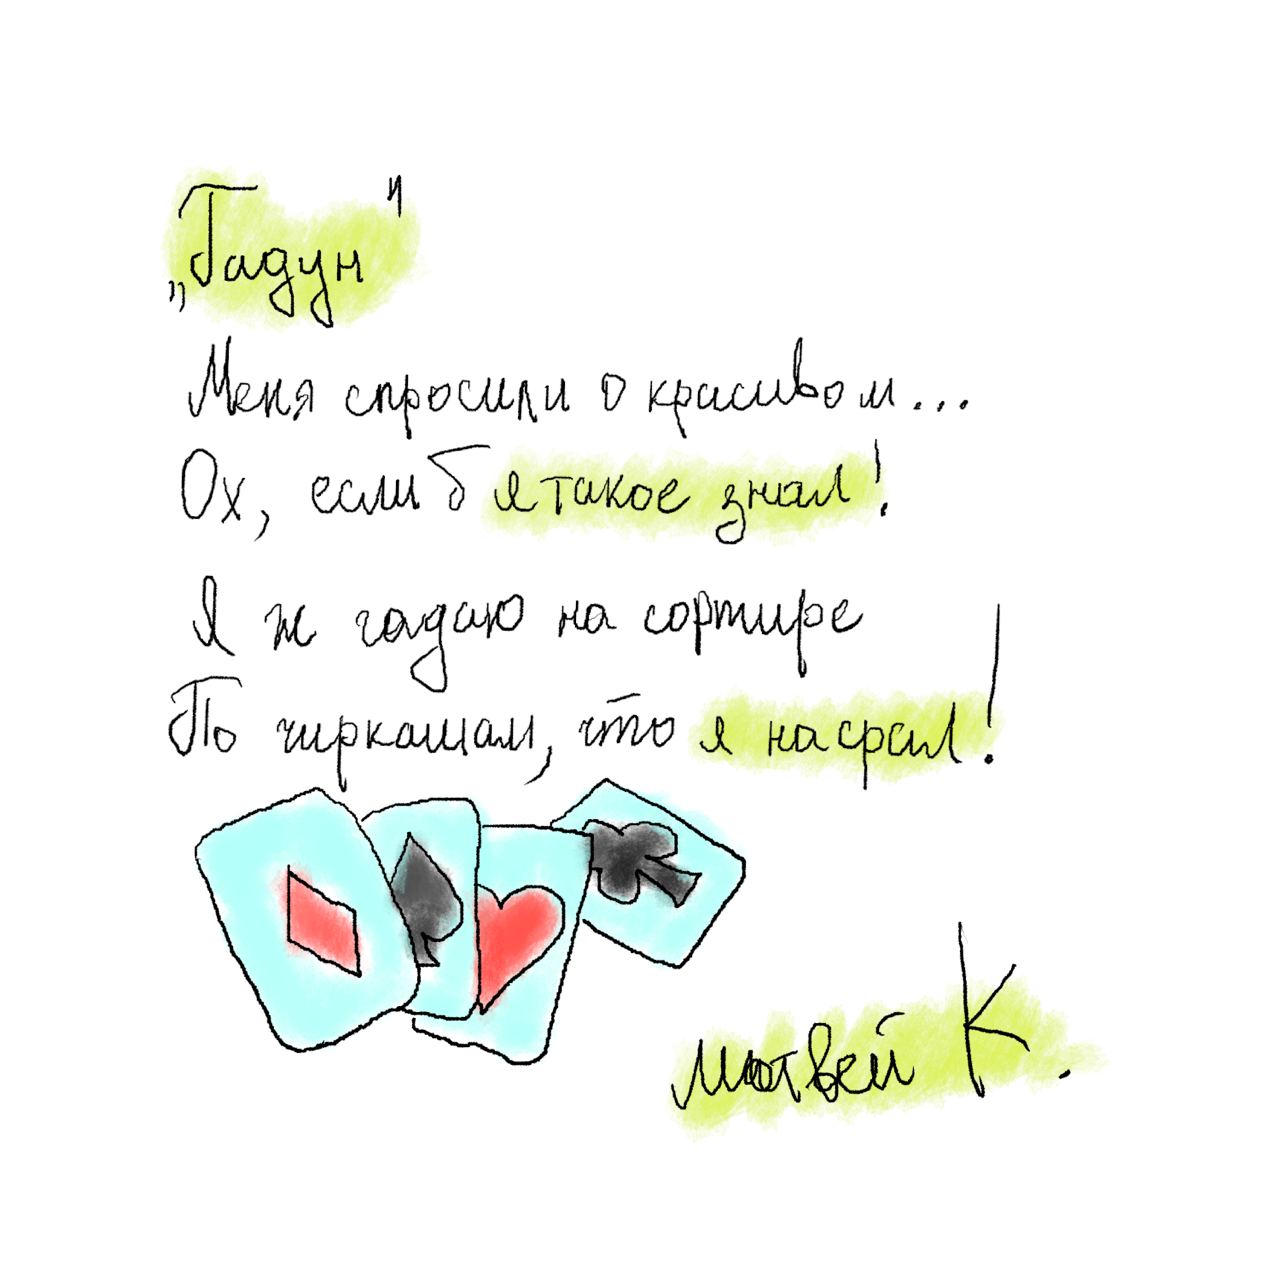 „Гадун"
Меня спросили о красивом...
Ох, если б я такое знал!
Я ж гадаю на сортире
По чиркашам, что я насрал!
Матвей К.